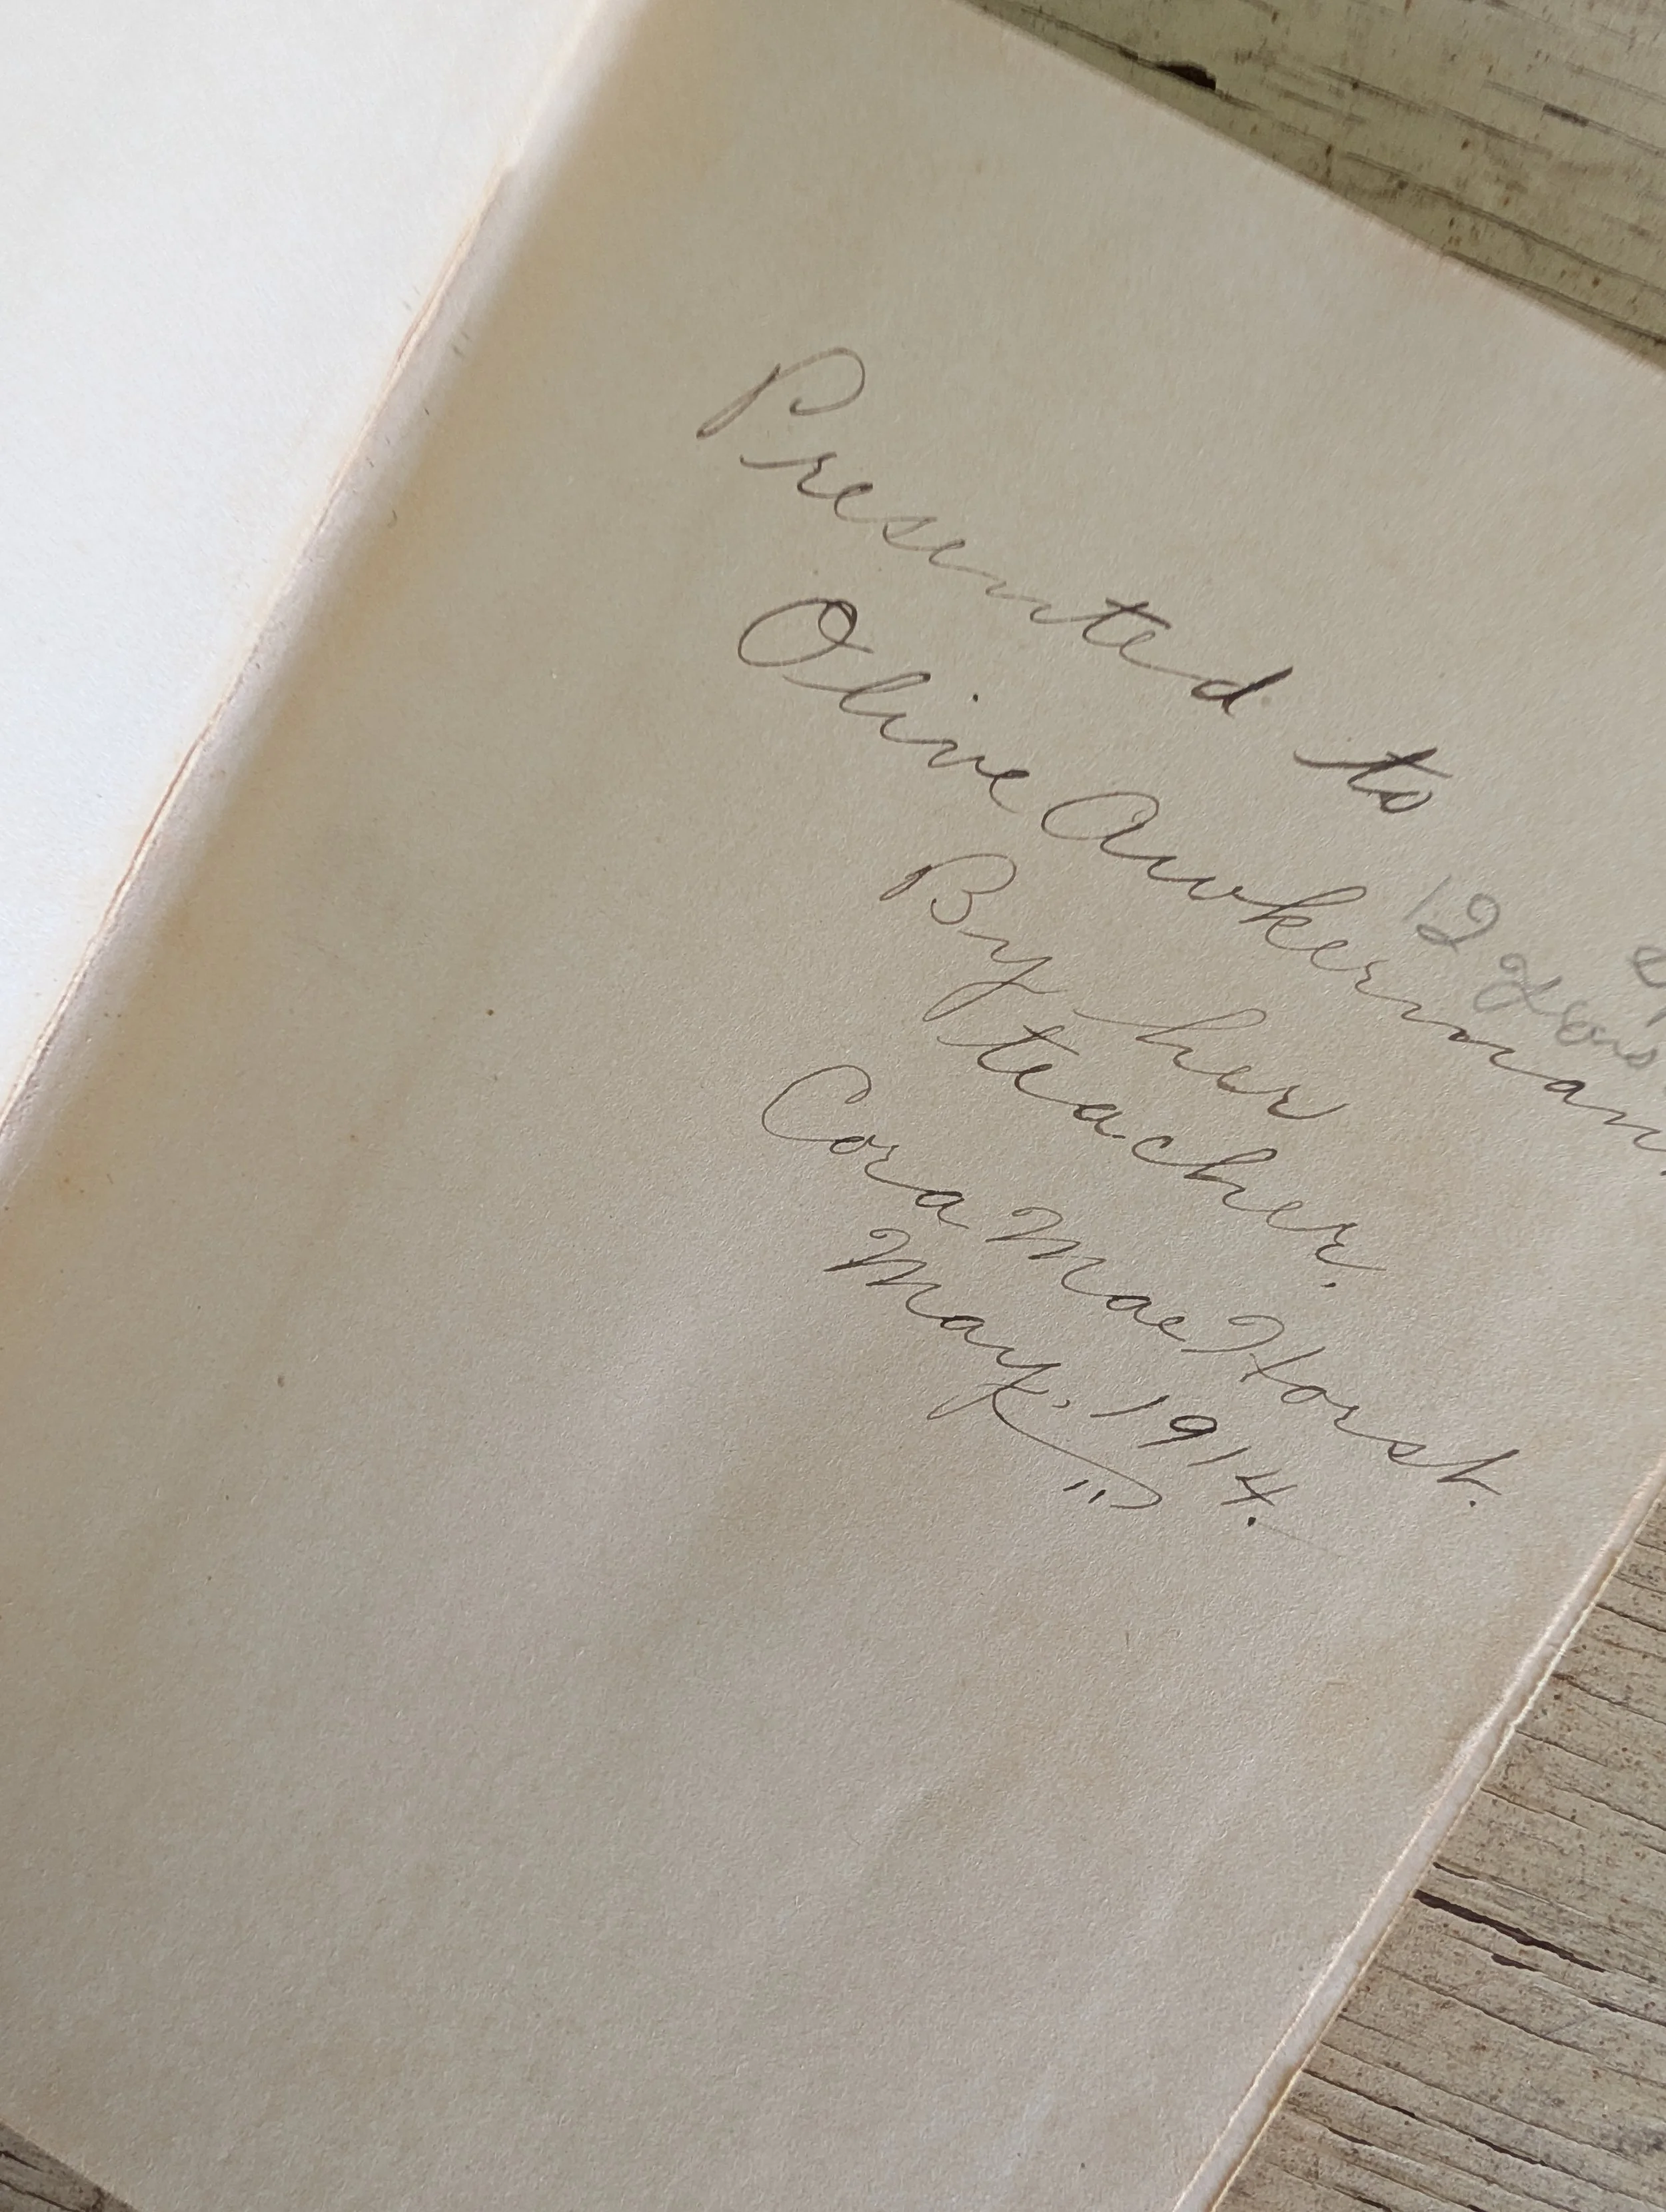 Presented to
Olive Awkerman.
12
By her
teacher.
Cora Mae Horst.
May, 1914.